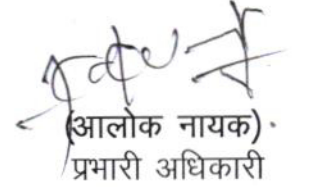 (आलोक नायक).
प्रभारी अधिकारी